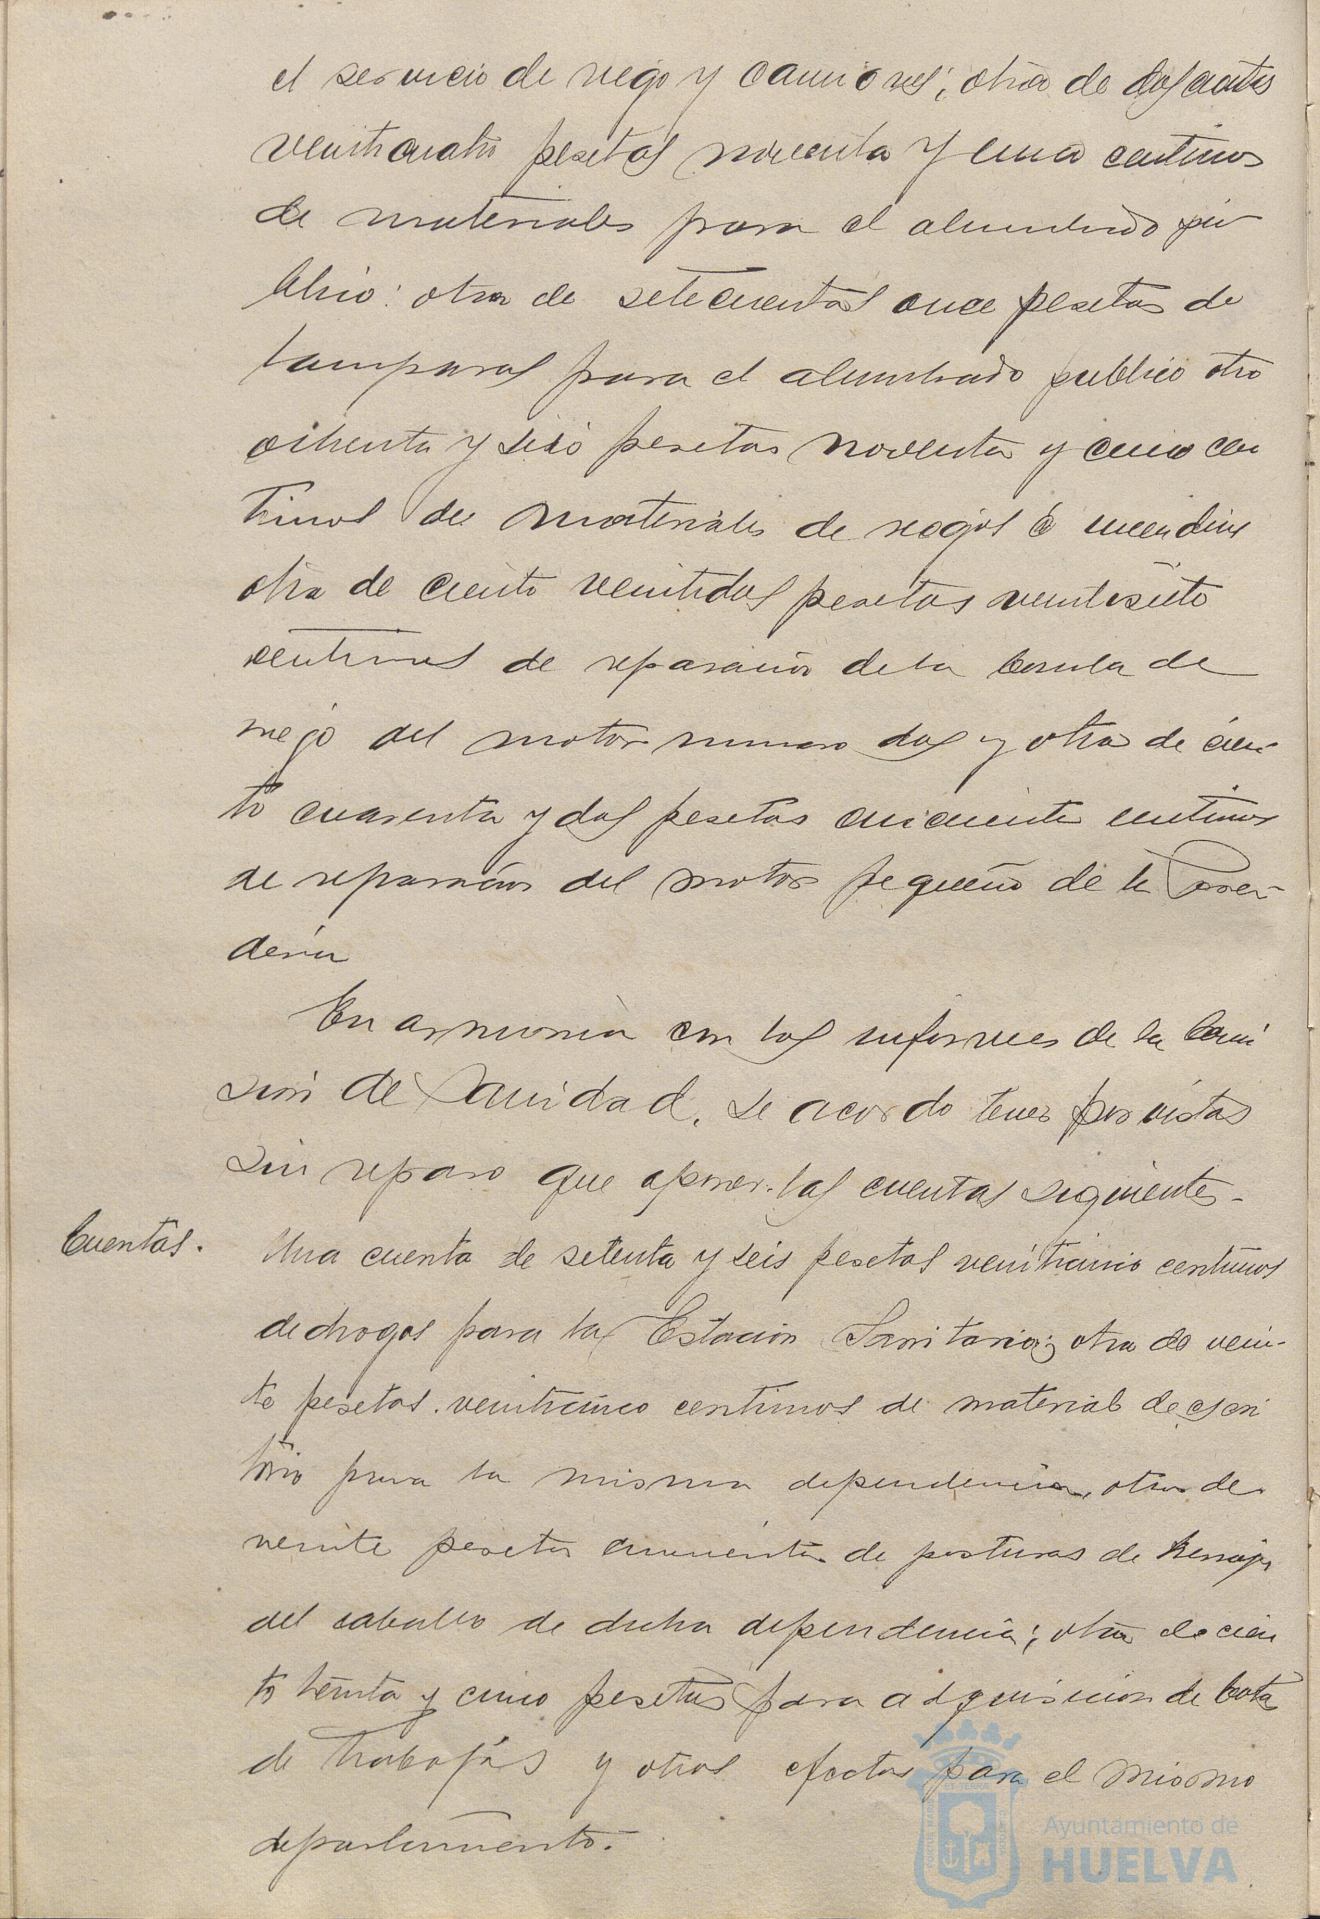 el servicio de riego y camiones; otra de doscientas
veinticuatro pesetas noventa y una centimos
de materiales para el alumbrado pú
blico: otra de setecientas once pesetas de
lamparas para el alumbrado publico otro
ochenta y seis pesetas noventa y cinco cen
timos de materiales de riegos é incendios
otra de ciento veintidos pesetas veintisiete
centimos de reparación de la bomba de
riego del motor numero dos y otra de cien-
to cuarenta y dos pesetas cincuenta centimos
de reparación del motor pequeño de la
deria
En armonia con los informes de la Comi
sion de Sanidad, se acordo tener por vistas
sin reparo que oponer las cuentas siguientes-
Cuentas. Una cuenta de setenta y seis pesetas veinticinco centimos
de drogas para la Estación Sanitaria; otra de vein-
te pesetas veinticinco centimos de material de escri
torio para la misma dependencia, otra de
veinte pesetas cincuenta de posturas de herrajes
del caballo de dicha dependencia; otra de cien
to treinta y cinco pesetas para adquisicion de bota
de trabajos y otros efectos para el mismo
departamento.
Ayuntamiento de
HUELVA